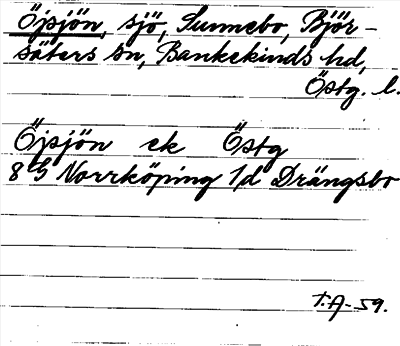 Öpsjön, sjö, Sunnebo, Björ-
säters sn, Bankekinds hd,
Östg. l.
Öpsjön ek Östg
8 G Norrköping 1/d Drängsbo
T.A-59.